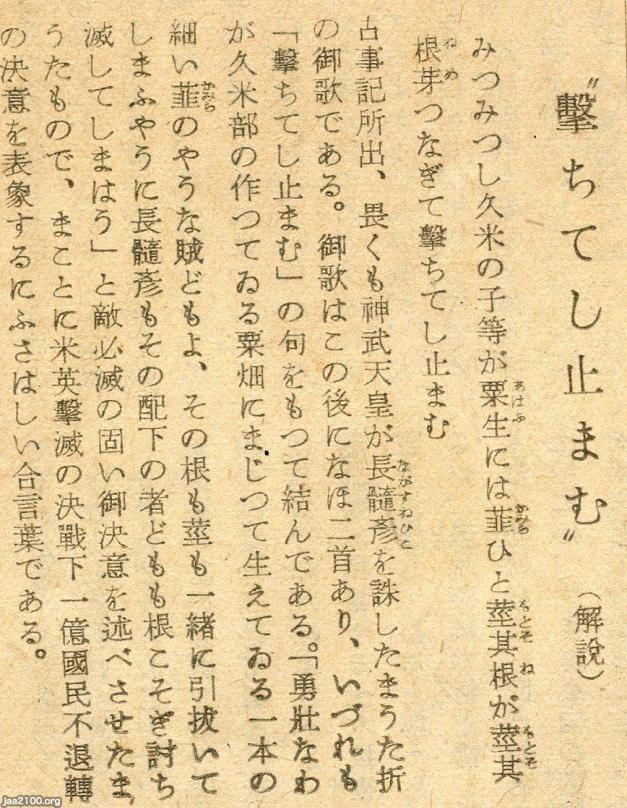 〝擊ちてし止まむ〟（解說）
みつみつし久米の子等が粟生には韮ひと莖其根が莖其
根芽つなぎて擊ちてし止まむ
古事記所出、畏くも神武天皇が長髓彥を誅したまうた折
の御歌である。御歌はこの後になほ二首あり、いづれも
「擊ちてし止まむ」の句をもつて結んである。「勇壯なわ
が久米部の作つてゐる粟畑にまじつて生えてゐる一本の
細い韮のやうな賊どもよ、その根も莖も一緒に引拔いて
しまふやうに長髓彥もその配下の者どもも根こそぎ討ち
滅してしまはう」と敵必滅の固い御決意を述べさせたま
うたもので、まことに米英擊滅の決戰下一億國民不退轉
の決意を表象するにふさはしい合言葉である。
jaa2100.org